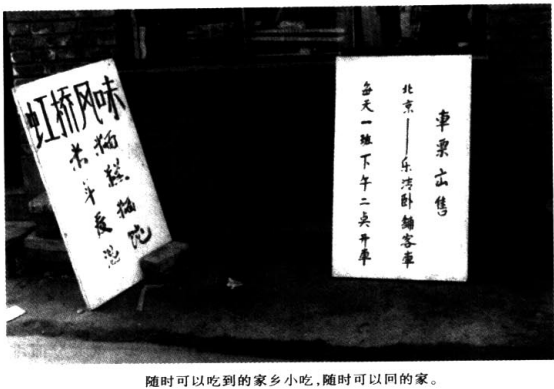 虹桥风味
車票出售
北京——乐清卧鋪客車
每天一班下午二点开車
随时可以吃到的家乡小吃,随时可以回的家。